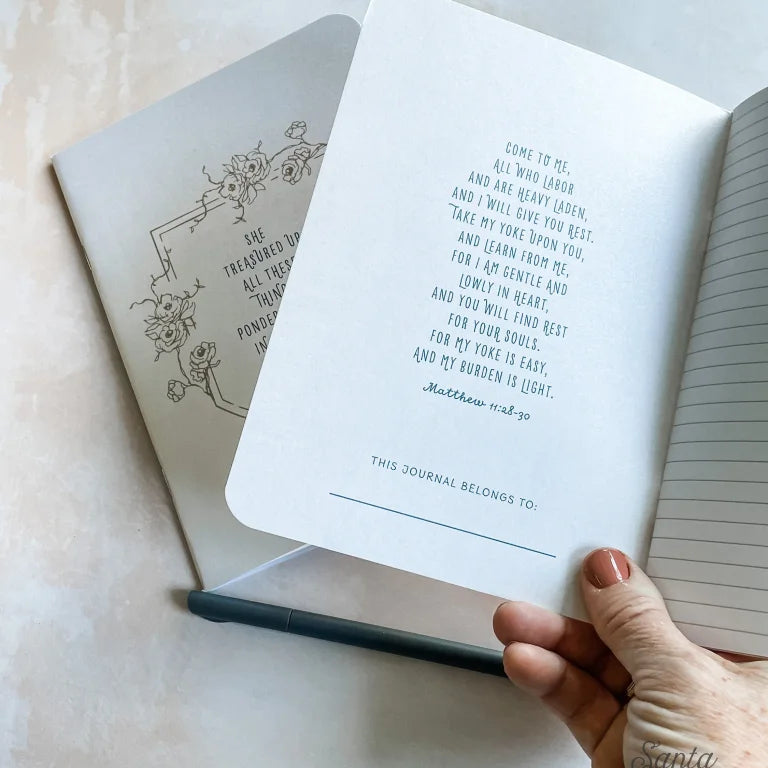 SHE
TREASURED UP
ALL THESE
IN
COME TO ME,
ALL WHO LABOR
AND ARE HEAVY LADEN,
AND I WILL GIVE YOU REST.
TAKE MY YOKE UPON YOU,
AND LEARN FROM ME,
FOR I AM GENTLE AND
LOWLY IN HEART,
AND YOU WILL FIND REST
FOR YOUR SOULS.
FOR MY YOKE IS EASY,
AND MY BURDEN IS LIGHT.
Matthew 11:28-30
THIS JOURNAL BELONGS TO:
Santa